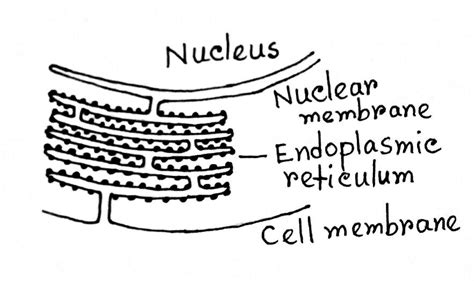 Nucleus
Nuclear
membrane
Endoplasmic
reticulum
Cell membrane